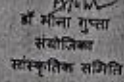 डॉ मीना गुप्ता
संयोजिका
सांस्कृतिक समिति